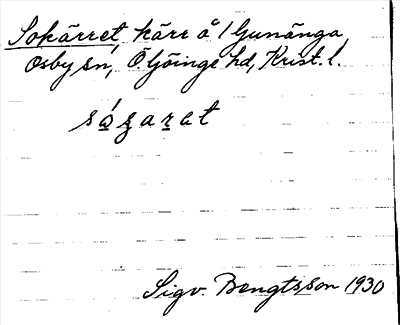 Sokärret, kärr å 1 Gunänga,
Osby sn, Ö. Göinge hd, Krist. l.
sǻʒarat
Sigv. Bengtsson 1930